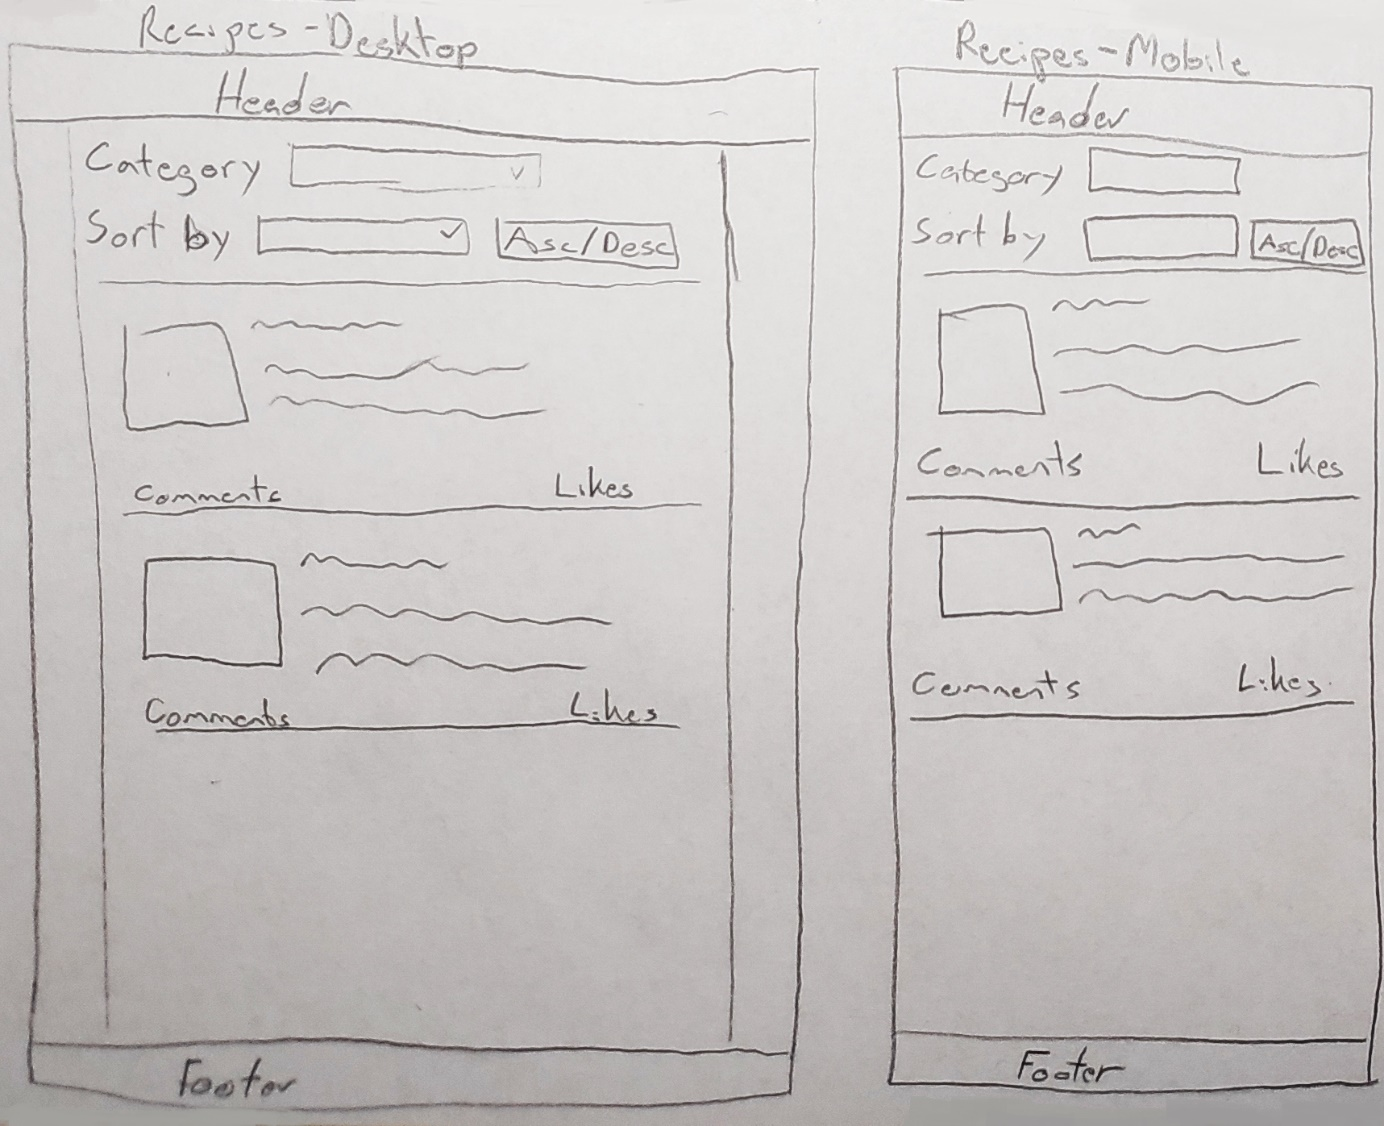 Recipes - Desktop
Header
Category
Sort by Asc/Desc
Comments Likes
Comments Likes
Footer
Recipes - Mobile
Header
Category
Sort by Asc/Desc
Comments Likes
Comments Likes
Footer